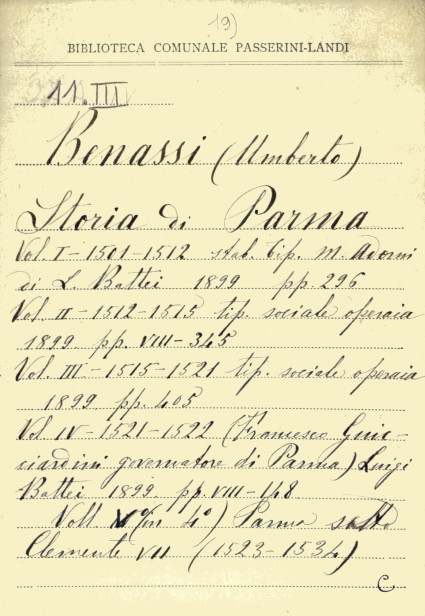 19)
BIBLIOTECA COMUNALE PASSERINI-LANDI
11.III
Benassi (Umberto)
Storia di Parma
Vol. I - 1501-1512 stab. tip. M. Adorni
di L. Battei 1899 pp. 296
Vol. II - 1512-1515 tip. sociale operaia
1899 pp. VIII - 345
Vol. III - 1515-1521 tip. sociale operaia
1899 pp. 405
Vol IV - 1521-1522 (Francesco Guic-
ciardini governatore di Parma) Luigi
Battei 1899. pp. VIII-148
Voll. (in 4°) Parma sotto
Clemente VII (1523-1534)
C